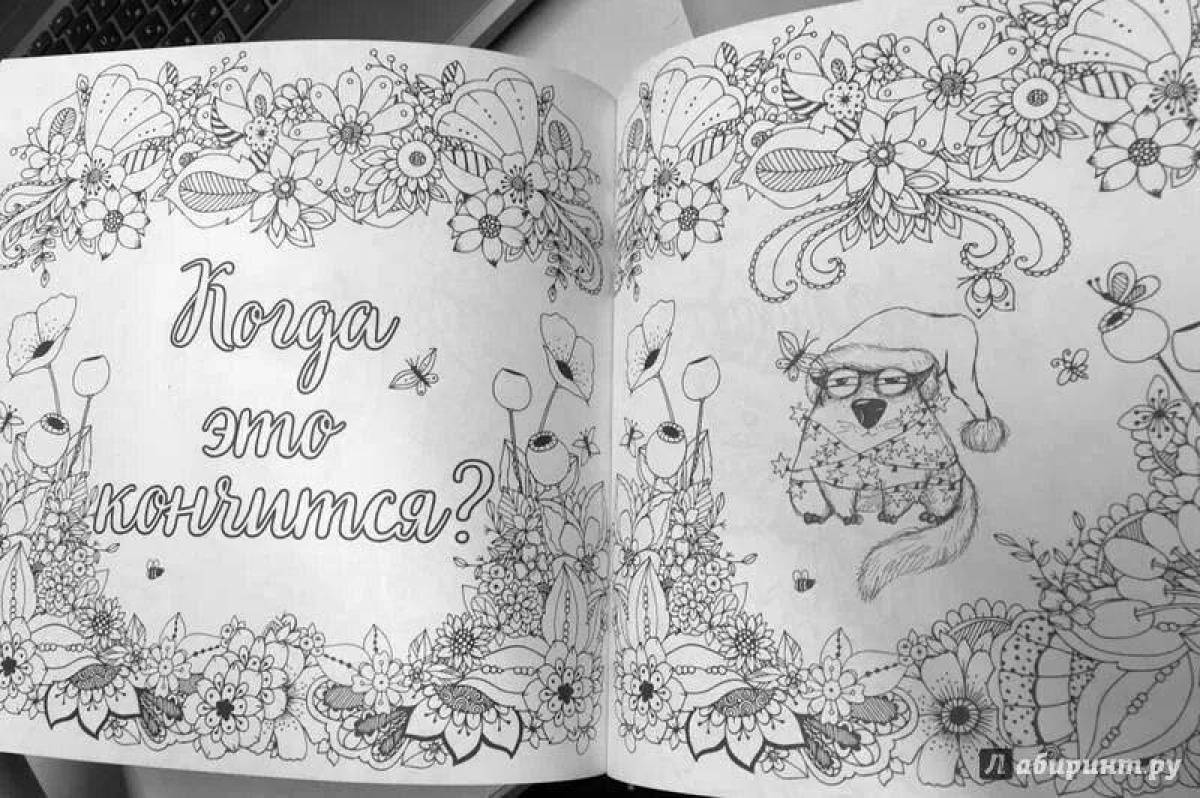 Когда
это
кончится?
Лабиринт.ру